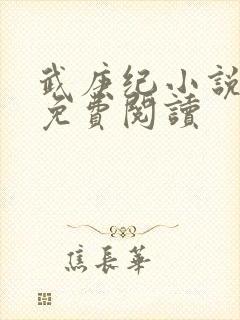 武庚纪小說
免費閱讀
焦長華